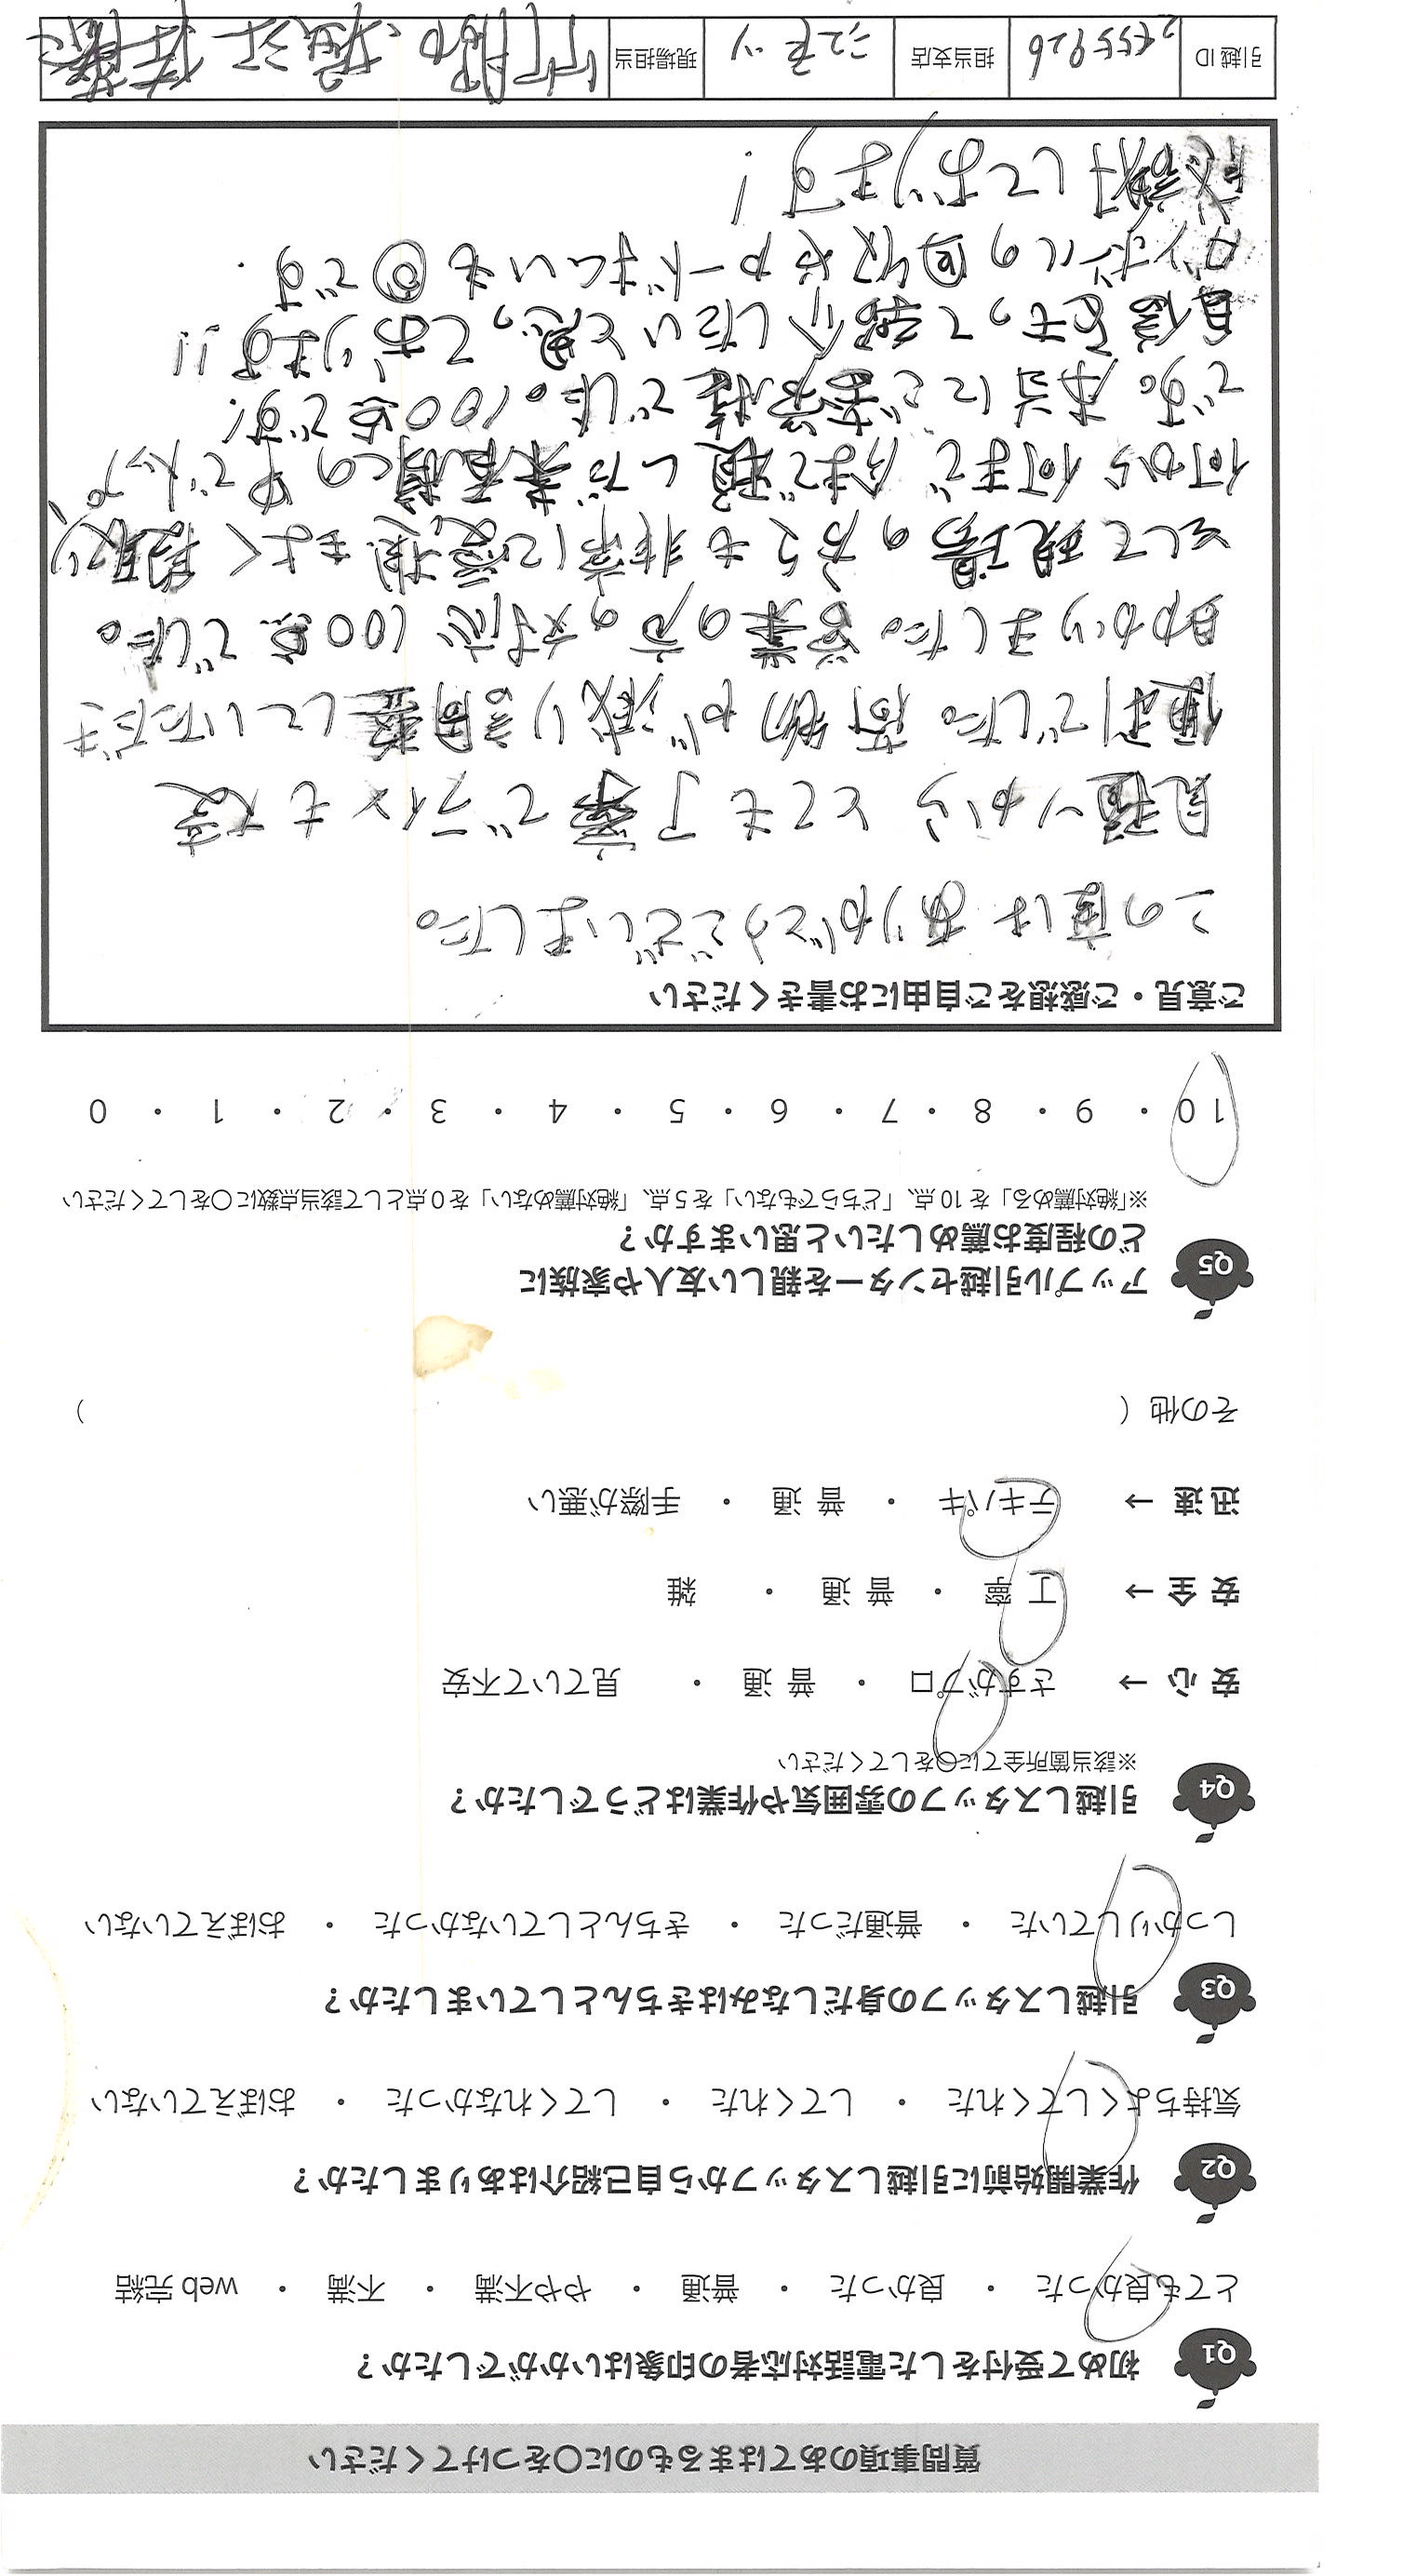 質問事項のあてはまるものに〇をつけてください
Q1 初めて受付をした電話対応者の印象はいかがでしたか？
とても良かった ・ 良かった ・ 普通 ・ やや不満 ・ 不満 ・ web 完結
Q2 作業開始前に引越しスタッフから自己紹介はありましたか？
気持ちよくしてくれた ・ してくれた ・ してくれなかった ・ おぼえていない
Q3 引越しスタッフの身だしなみはきちんとしていましたか？
しっかりしていた ・ 普通だった ・ きちんとしていなかった ・ おぼえていない
Q4 引越しスタッフの雰囲気や作業はどうでしたか？
※該当箇所全てに〇をしてください
安心→ さすがプロ ・ 普通 ・ 見ていて不安
安全→ 丁寧 ・ 普通 ・ 雑
迅速→ テキパキ ・ 普通 ・ 手際が悪い
その他（ ）
Q5 アップル引越センターを親しい友人や家族に
どの程度お薦めしたいと思いますか？
※「絶対薦める」を10点、「どちらでもない」を5点、「絶対薦めない」を0点として該当点数に〇をしてください
10 ・ 9 ・ 8 ・ 7 ・ 6 ・ 5 ・ 4 ・ 3 ・ 2 ・ 1 ・ 0
ご意見・ご感想をご自由にお書きください
この度はありがとうございました。
見積りからとても丁寧でラインも大変
便利でした。荷物が減り調整していただき
助かりました。営業の方の対応100点でした。
そして現場の方々も非常に愛想もよく段取り、
何から何まで今まで頼んだ業者様の中でトップ
です。本当にご苦労様でした。100点です!
自信をもって紹介したいと思っております!!
ダンボールの回収やカードばらいも◎です.
感謝しております!
引越ID 2555926 担当支店 江東ッ 現場担当 竹服、堀江 佐藤